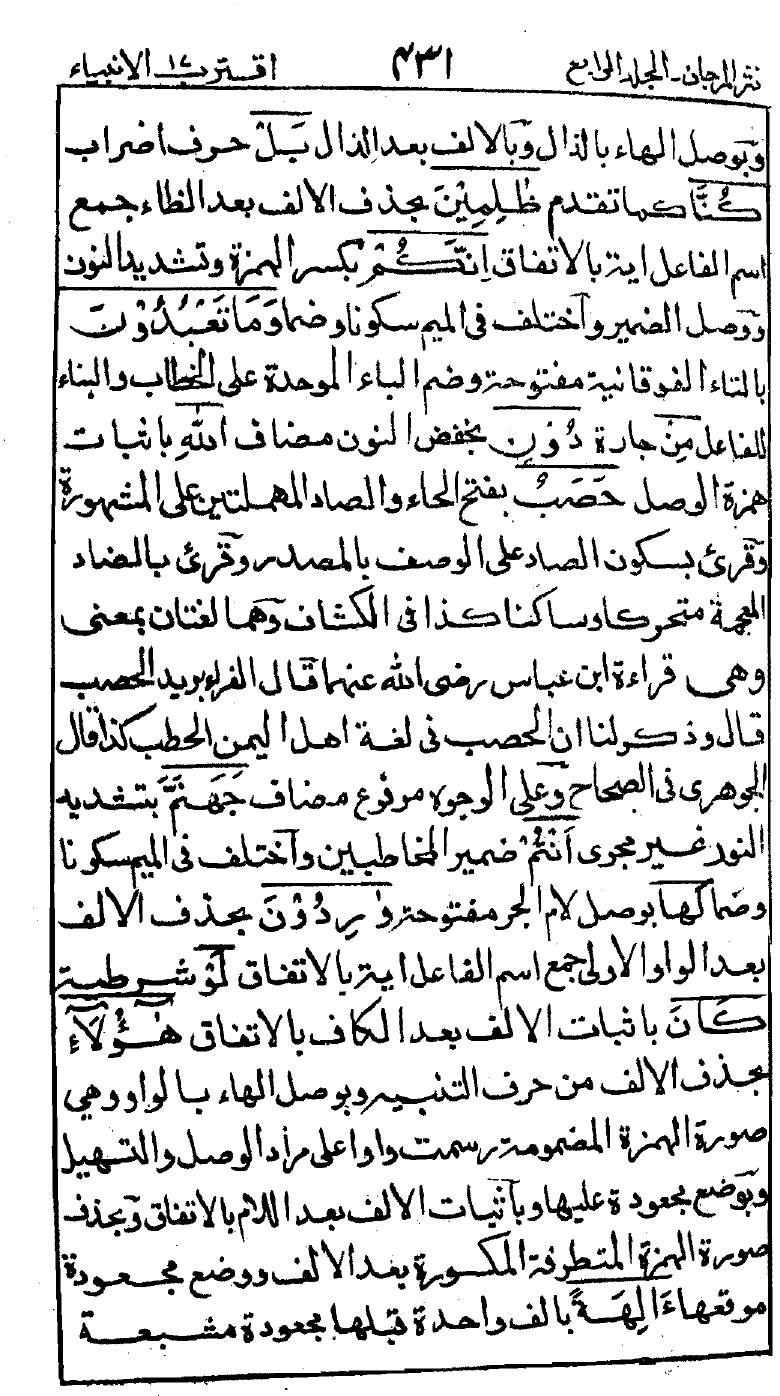 نثر المرجان ـ المجلد الرابع ٤٣١ اقترب ١٧ الانبياء
وبوصل الهاء بالذال وبالالف بعد الذال بَلْ حرف اضراب
كُنَّا كما تقدم ظٰلِمِيْنَ بحذف الالف بعد الظاء جمع
اسم الفاعل اية بالاتفاق اِنَّكُمْ بكسر الهمزة وتشديد النون
ووصل الضمير واختلف فى الميم سكونا وضما وَمَا تَعْبُدُوْنَ
بالتاء الفوقانية مفتوحة وضم الباء الموحدة على الخطاب والبناء
للفاعل مِنْ جارة دُوْنِ بخفض النون مضاف اللّٰهِ باثبات
همزة الوصل حَصَبُ بفتح الحاء والصاد المهملتين على المشهورة
وقرئ بسكون الصاد على الوصف بالمصدر وقرئ بالضاد
المعجمة متحركا وساكنا كذا فى الكشاف وهما لغتان بمعنى
وهى قراءة ابن عباس رضى الله عنهما قال الفراء يريد الحصب
قال وذكر لنا ان الحصب فى لغة اهل اليمن الحطب كذا قال
الجوهرى فى الصحاح وعلى الوجوه مرفوع مضاف جَهَنَّمَ بتشديد
النون غير مجرى اَنْتُمْ ضمير المخاطبين واختلف فى الميم سكونا
وضما لَهَا بوصل لام الجر مفتوحة وٰرِدُوْنَ بحذف الالف
بعد الواو الاولى جمع اسم الفاعل اية بالاتفاق لَوْ شرطية
كَانَ باثبات الالف بعد الكاف بالاتفاق هٰٓؤُلَآءِ
بحذف الالف من حرف التنبيه وبوصل الهاء بالواو وهي
صورة الهمزة المضمومة رسمت واوا على مراد الوصل والتسهيل
وبوضع مجعودة عليها وباثبات الالف بعد اللام بالاتفاق وبحذف
صورة الهمزة المتطرفة المكسورة بعد الالف ووضع مجعودة
موقعها ءَالِهَةً بالف واحدة قبلها مجعودة مشبعة